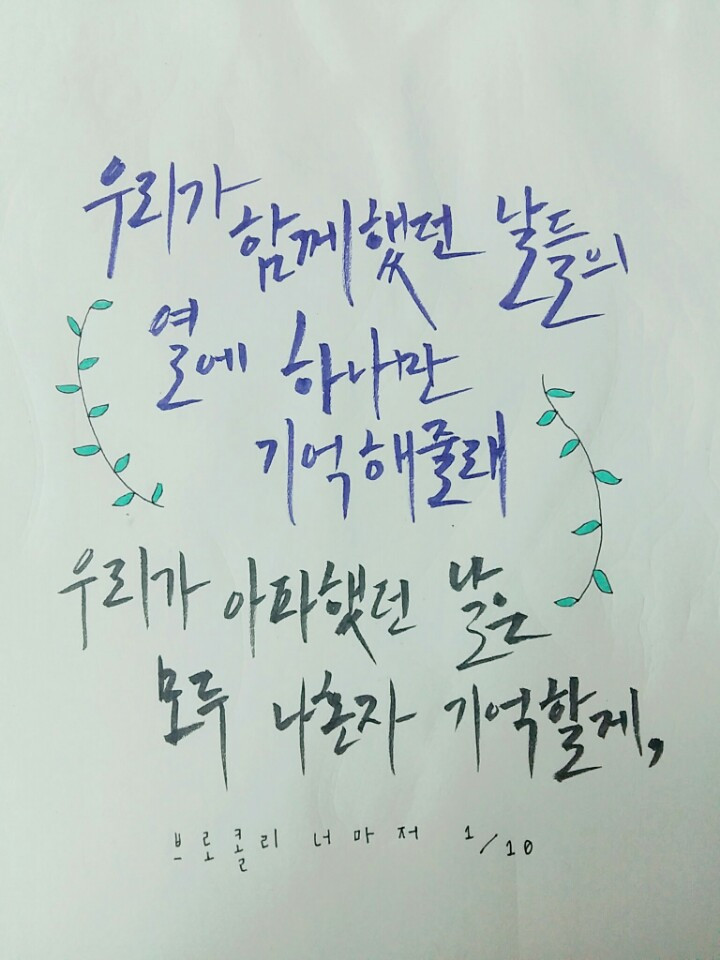 우리가 함께했던 날들의
열에 하나만
기억해줄래
우리가 아파했던 날은
모두 나혼자 기억할게,
브로콜리 너마저 1/10